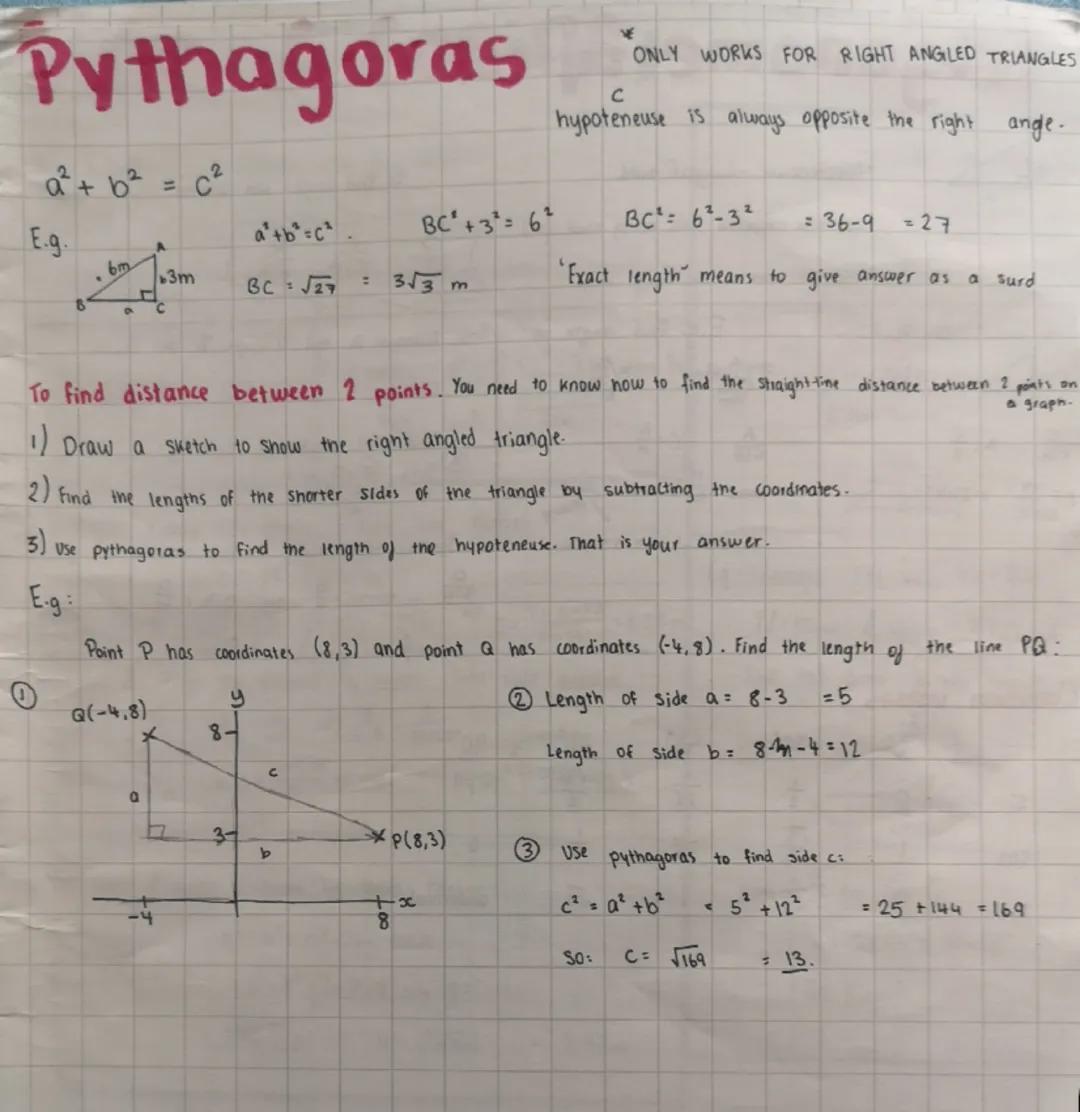 Pythagoras
* ONLY WORKS FOR RIGHT ANGLED TRIANGLES
c
hypoteneuse is always opposite the right angle.
a² + b² = c²
E.g.
a²+b²=c². BC²+3²=6² BC²=6²-3² =36-9 =27
A
6m
b 3m
B
a
C
BC = √27 = 3√3 m "Exact length" means to give answer as a surd
To find distance between 2 points. You need to know how to find the straight-line distance between 2 points on
a graph.
1) Draw a sketch to show the right angled triangle.
2) Find the lengths of the shorter sides of the triangle by subtracting the coordinates.
3) Use pythagoras to find the length of the hypoteneuse. That is your answer.
E.g:
Point P has coordinates (8,3) and point Q has coordinates (-4,8). Find the length of the line PQ:
①
Q(-4,8)
y
8
c
a
3
b
P(8,3)
-4
8
x
② Length of side a = 8-3 =5
Length of side b = 8- -4 =12
③ Use pythagoras to find side c:
c² = a² +b² = 5² +12² = 25 +144 =169
So: C= √169 = 13.